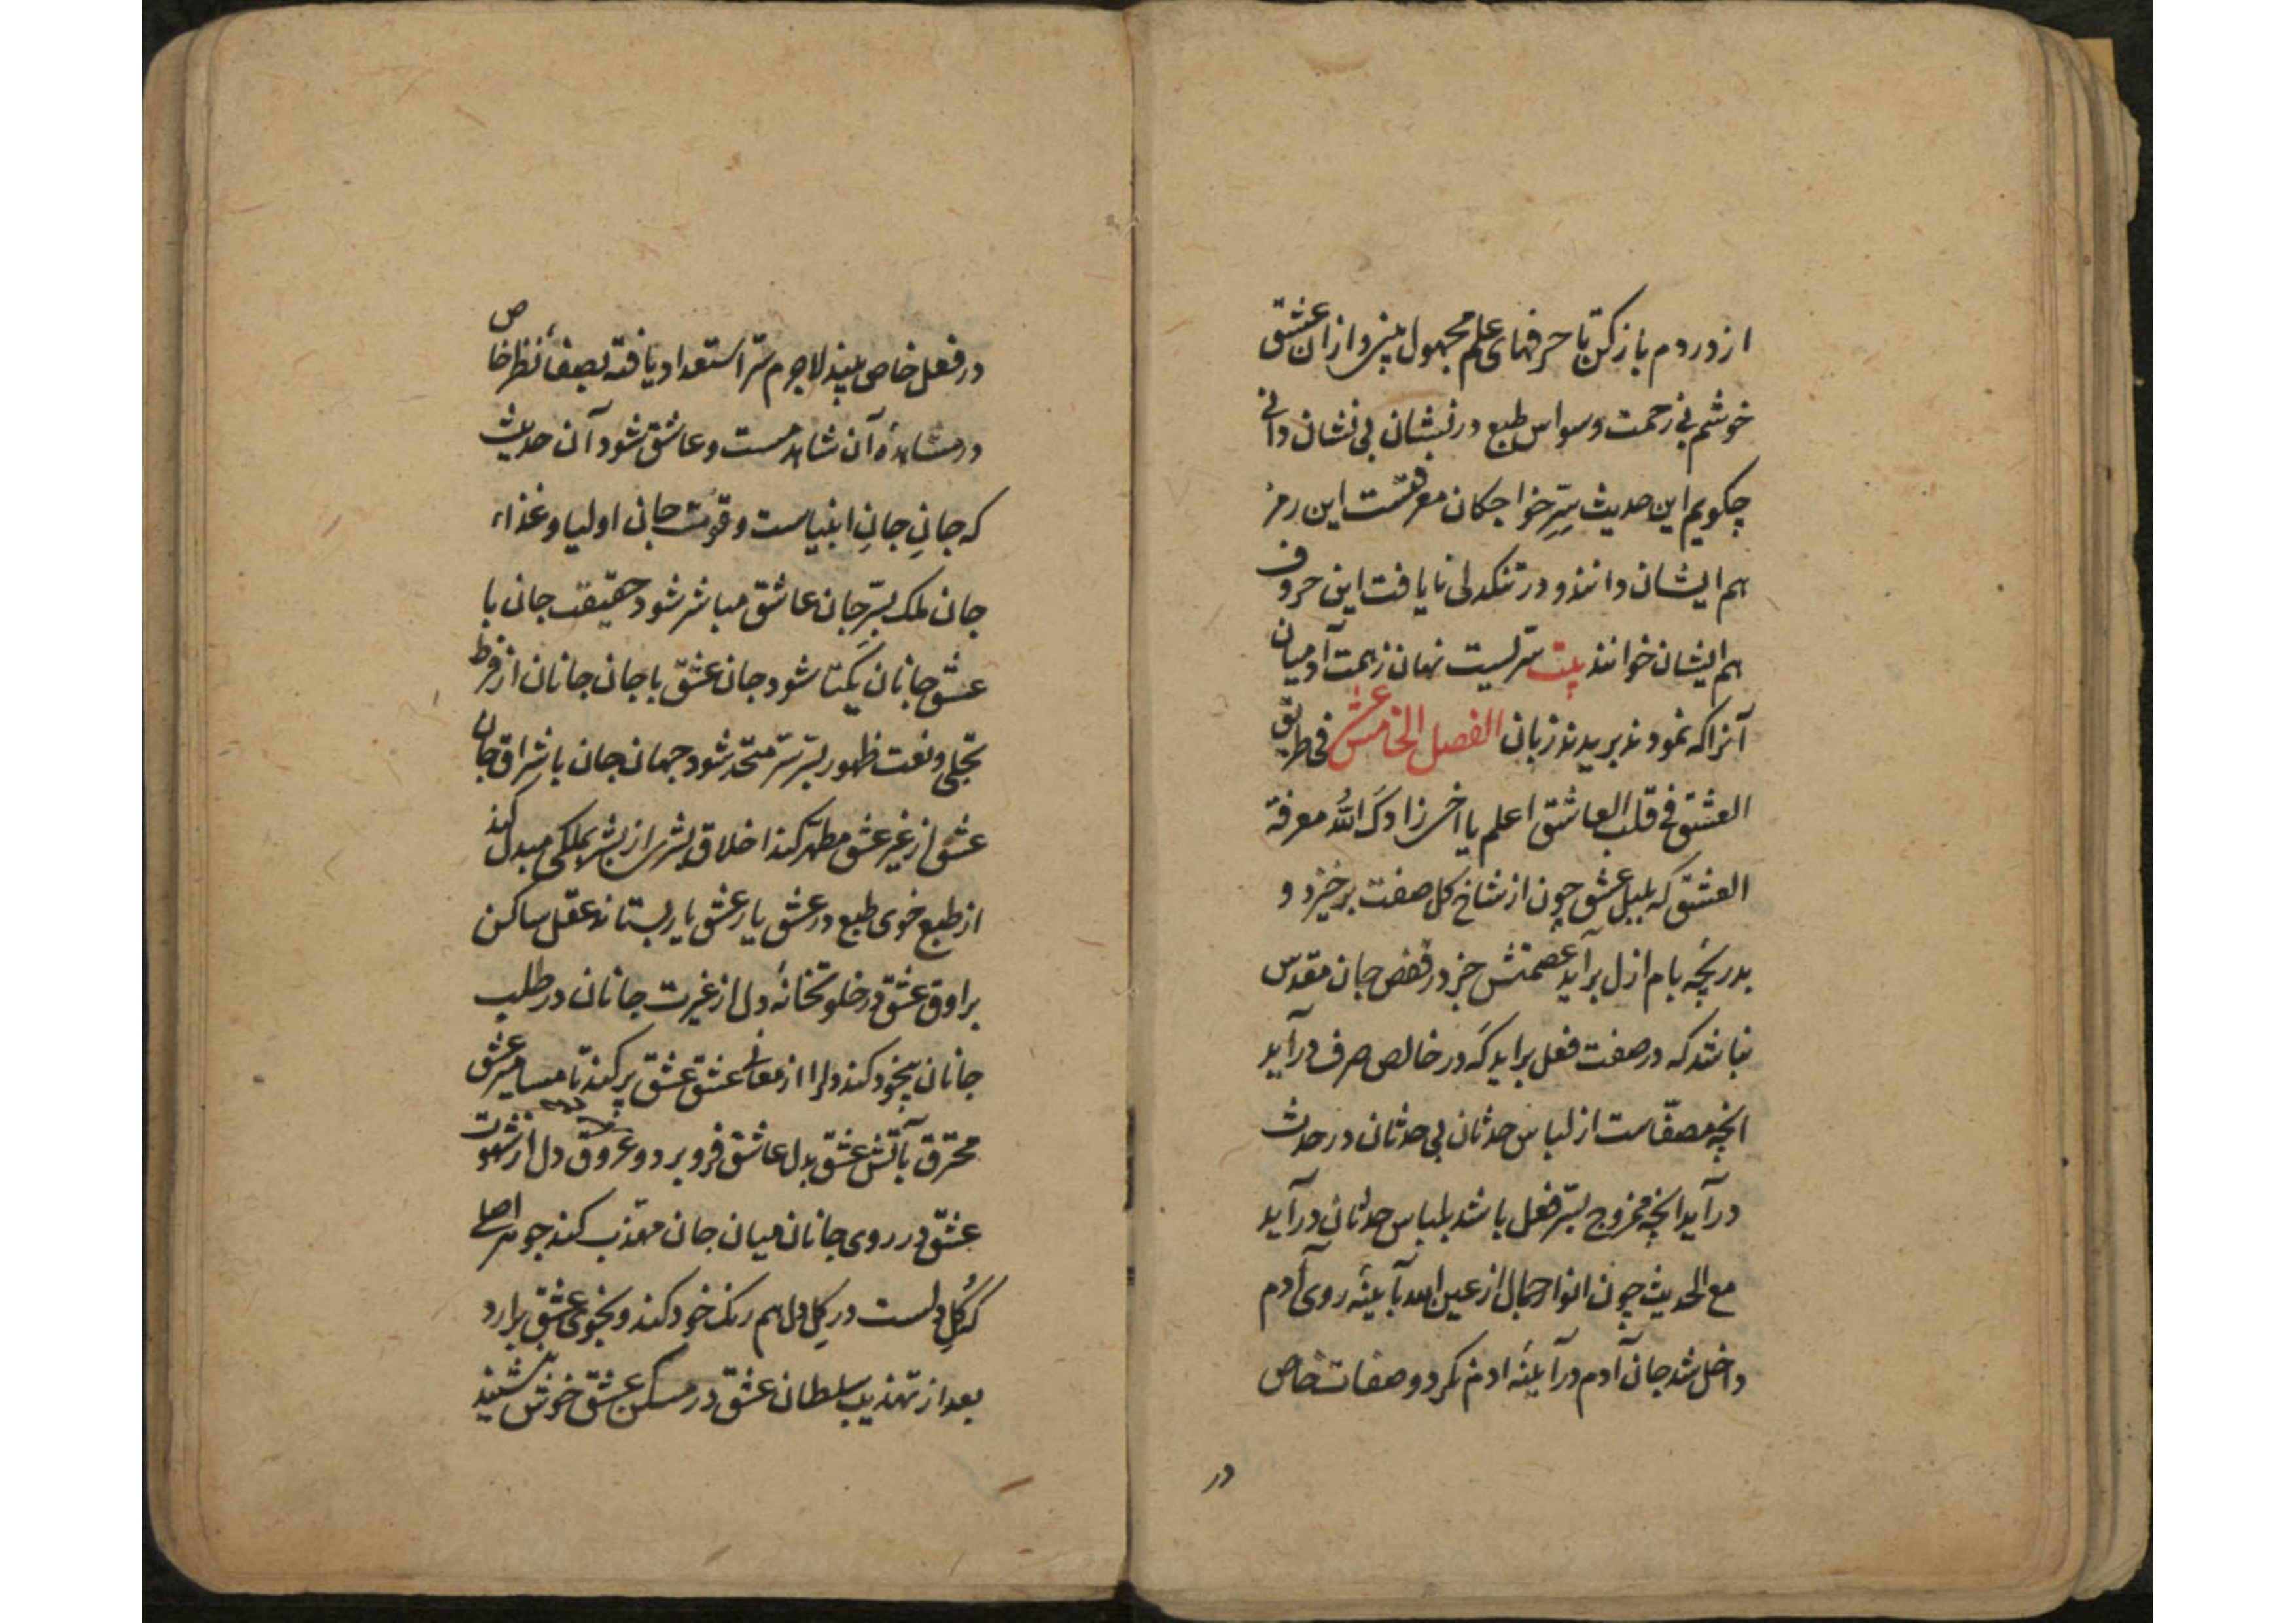 از دردم باز کن تا حرفهای علم مجهول بپردازان عشق
خوشم بی زحمت وسواس طبع در نبشتان بی نشان دانی
چکویم این حدیث سرّ خواجکان معرفتست این رمز
هم ایشان دانند و در تنکدلی نایافت این حروف
هم ایشان خوانند بیت سرّیست نهان ز همت آدمیان
آنرا که نمودند بریدند زبان الفصل الخامس عشر فی طریق
العشق فی قلب العاشق اعلم یا اخی زادک الله معرفة
العشق که بلبل عشق چون از شاخ کل صفت برخیزد و
بدریچه بام ازل برآید عصمتش جز در قفص جان مقدس
نباشد که در صفت فعل برآید که در خالص صرف درآید
انچه مصفّاست از لباس حدثان بی حدثان در حدث
درآید انچه ممزوج بسرّ فعل باشد بلباس حدثان درآید
مع الحدیث چون انوار جمال از عین الله بآیینه روی آدم
داخل شد جان آدم در آیینه آدم نکرد و صفات خاص
در
در فعل خاص بیند لاجرم سرّ استعداد یافته بصفاء نظر خاص
در مشاهدهٔ آن شاهد مست و عاشق شود آن حدیث
که جانِ جانِ انبیاست و قوت جان اولیا و غذاء
جان ملک بسرّ جان عاشق مباشر شود حقیقت جان با
عشق جانان یکتا شود جان عشق با جان جانان از فرط
تجلی و نعت ظهور بسرّ سرّ متحد شود جهان جان باشراق جان
عشق از غیر عشق مطهّر کند اخلاق بشری از بشر بملکی مبدل کند
از طبع خوی طبع در عشق یار عشق یار بستاند عقل ساکن
براوق عشق در خلوتخانهٔ دل از غیرت جانان در طلب
جانان بیخود کند دلرا از معانی عشق عشق پر کند تا مسامیر عشق
محترق بآتش عشق بدل عاشق فرو برد و عروق دل از شهوت
عشق در روی جانان میان جان مهذب کند جوهر اصلی
که کِل دلست در کِل دل هم رنک خود کند و بخوی عشق برآرد
بعد از تهذیب سلطان عشق در مسکن عشق خوش بنشیند